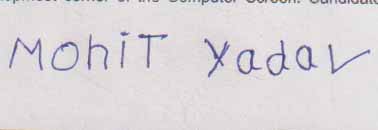 corner of the Computer Screen. Candidate
MohiT Yadav